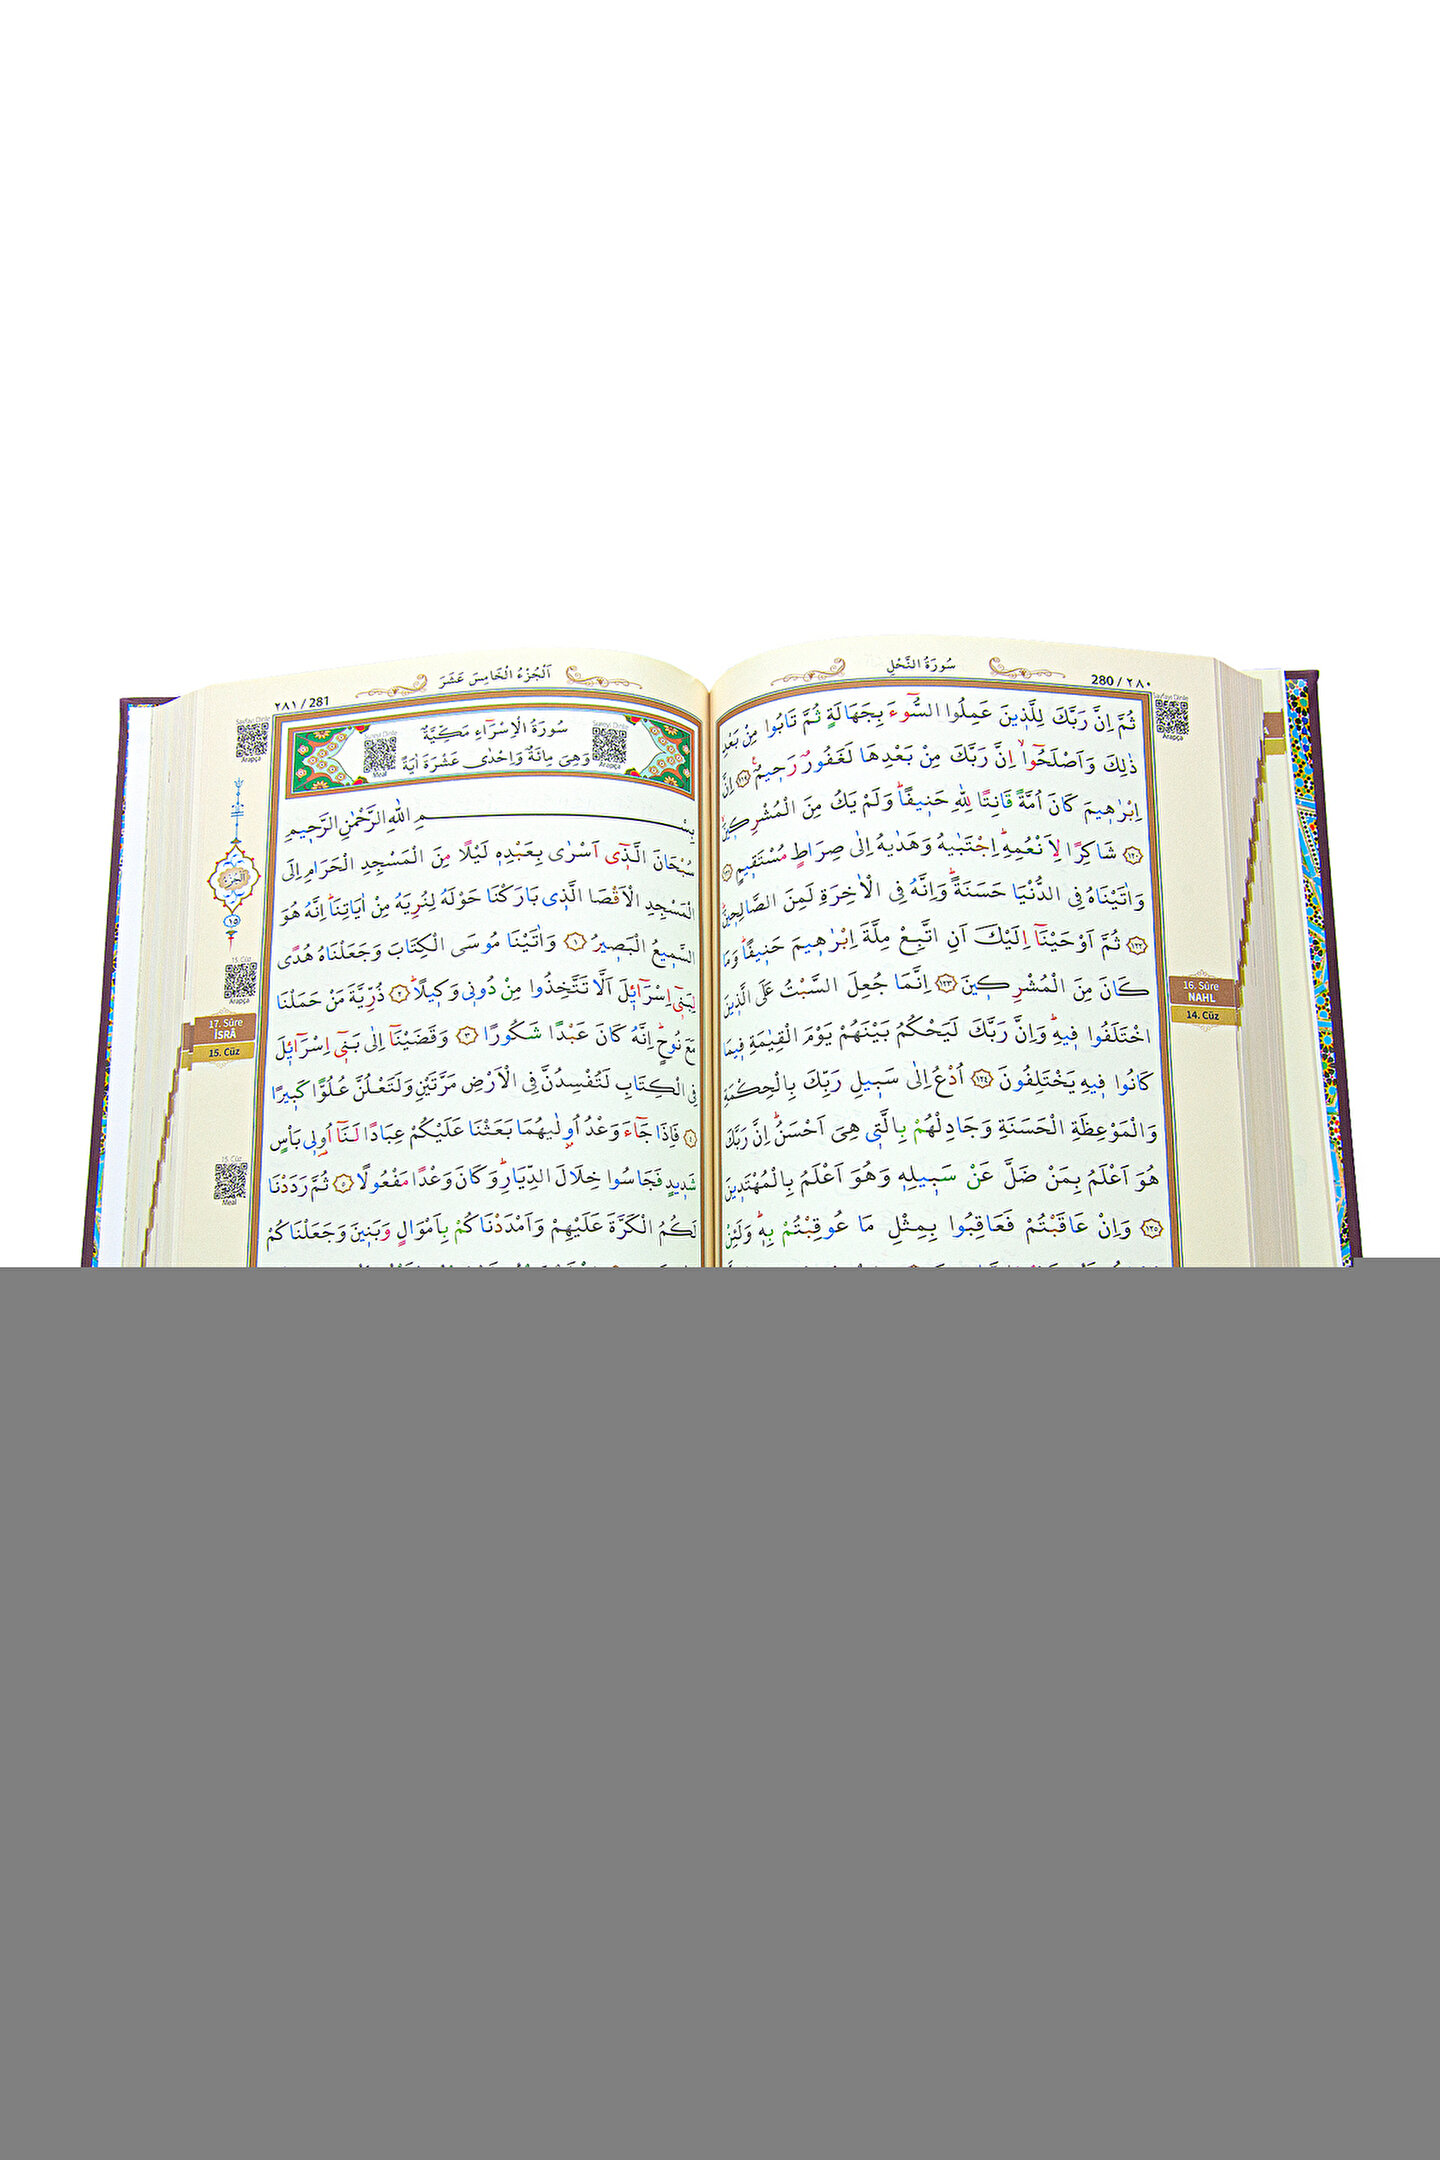 سُورَةُ النَّحْلِ
280 / ٢٨٠
Sayfayı Dinle
Arapça
ثُمَّ اِنَّ رَبَّكَ لِلَّذ۪ينَ عَمِلُوا السُّٓوءَ بِجَهَالَةٍ ثُمَّ تَابُوا مِنْ بَعْدِ
ذٰلِكَ وَاَصْلَحُٓوا اِنَّ رَبَّكَ مِنْ بَعْدِهَا لَغَفُورٌ رَح۪يمٌ ۟ ﴿١١٩﴾ اِنَّ
اِبْرٰه۪يمَ كَانَ اُمَّةً قَانِتًا لِلّٰهِ حَن۪يفًاۜ وَلَمْ يَكُ مِنَ الْمُشْرِك۪ينَۙ
﴿١٢٠﴾ شَاكِرًا لِاَنْعُمِهِۜ اِجْتَبٰيهُ وَهَدٰيهُ اِلٰى صِرَاطٍ مُسْتَق۪يمٍ ﴿١٢١﴾
وَاٰتَيْنَاهُ فِي الدُّنْيَا حَسَنَةًۜ وَاِنَّهُ فِي الْاٰخِرَةِ لَمِنَ الصَّالِح۪ينَۜ
﴿١٢٢﴾ ثُمَّ اَوْحَيْنَٓا اِلَيْكَ اَنِ اتَّبِعْ مِلَّةَ اِبْرٰه۪يمَ حَن۪يفًاۜ وَمَا
كَانَ مِنَ الْمُشْرِك۪ينَ ﴿١٢٣﴾ اِنَّمَا جُعِلَ السَّبْتُ عَلَى الَّذ۪ينَ
اخْتَلَفُوا ف۪يهِۜ وَاِنَّ رَبَّكَ لَيَحْكُمُ بَيْنَهُمْ يَوْمَ الْقِيٰمَةِ ف۪يمَا
كَانُوا ف۪يهِ يَخْتَلِفُونَ ﴿١٢٤﴾ اُدْعُ اِلٰى سَب۪يلِ رَبِّكَ بِالْحِكْمَةِ
وَالْمَوْعِظَةِ الْحَسَنَةِ وَجَادِلْهُمْ بِالَّت۪ي هِيَ اَحْسَنُۜ اِنَّ رَبَّكَ
هُوَ اَعْلَمُ بِمَنْ ضَلَّ عَنْ سَب۪يلِه۪ وَهُوَ اَعْلَمُ بِالْمُهْتَد۪ينَ
﴿١٢٥﴾ وَاِنْ عَاقَبْتُمْ فَعَاقِبُوا بِمِثْلِ مَا عُوقِبْتُمْ بِه۪ۜ وَلَئِنْ
16. Sûre
NAHL
14. Cüz
اَلْجُزْءُ الْخَامِسَ عَشَرَ
٢٨١ / 281
Sayfayı Dinle
Arapça
سُورَةُ الْاِسْرَٓاءِ مَكِّيَّةٌ
وَهِيَ مِائَةٌ وَاِحْدٰى عَشْرَةَ اٰيَةً
Sureyi Dinle
Arapça
Sureyi Dinle
Meal
بِسْمِ اللّٰهِ الرَّحْمٰنِ الرَّح۪يمِ
سُبْحَانَ الَّذ۪ٓي اَسْرٰى بِعَبْدِه۪ لَيْلًا مِنَ الْمَسْجِدِ الْحَرَامِ اِلَى
الْمَسْجِدِ الْاَقْصَا الَّذ۪ي بَارَكْنَا حَوْلَهُ لِنُرِيَهُ مِنْ اٰيَاتِنَاۜ اِنَّهُ هُوَ
السَّم۪يعُ الْبَص۪يرُ ﴿١﴾ وَاٰتَيْنَا مُوسَى الْكِتَابَ وَجَعَلْنَاهُ هُدًى
لِبَن۪ٓي اِسْرَٓائ۪لَ اَلَّا تَتَّخِذُوا مِنْ دُون۪ي وَك۪يلًاۜ ﴿٢﴾ ذُرِّيَّةَ مَنْ حَمَلْنَا
مَعَ نُوحٍۜ اِنَّهُ كَانَ عَبْدًا شَكُورًا ﴿٣﴾ وَقَضَيْنَٓا اِلٰى بَن۪ٓي اِسْرَٓائ۪لَ
فِي الْكِتَابِ لَتُفْسِدُنَّ فِي الْاَرْضِ مَرَّتَيْنِ وَلَتَعْلُنَّ عُلُوًّا كَب۪يرًا
﴿٤﴾ فَاِذَا جَٓاءَ وَعْدُ اُو۫لٰيهُمَا بَعَثْنَا عَلَيْكُمْ عِبَادًا لَنَٓا اُو۬ل۪ي بَاْسٍ
شَد۪يدٍ فَجَاسُوا خِلَالَ الدِّيَارِۜ وَكَانَ وَعْدًا مَفْعُولًا ﴿٥﴾ ثُمَّ رَدَدْنَا
لَكُمُ الْكَرَّةَ عَلَيْهِمْ وَاَمْدَدْنَاكُمْ بِاَمْوَالٍ وَبَن۪ينَ وَجَعَلْنَاكُمْ
الْجُزْءُ
١٥
15. Cüz
Arapça
17. Sûre
İSRÂ
15. Cüz
15. Cüz
Meal